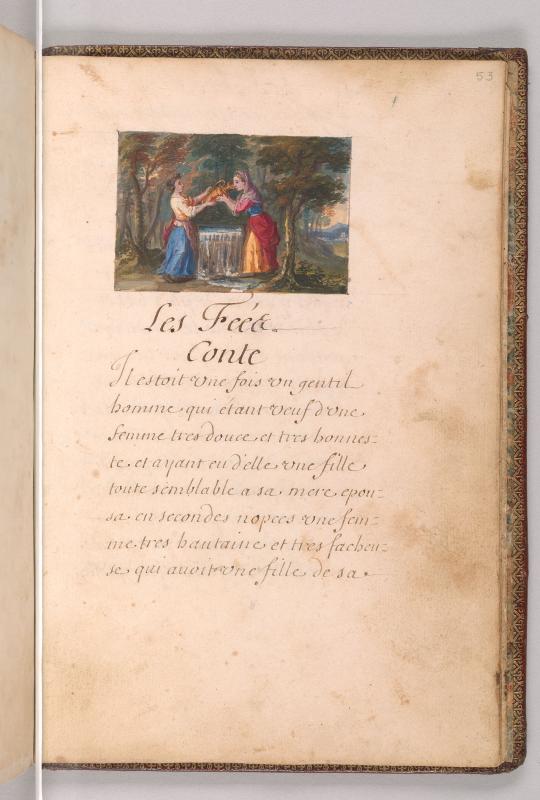 53
Les Fées.
Conte
Il estoit vne fois vn gentil
homme qui étant veuf d'vne
femme tres douce et tres honnes=
te et ayant eu d'elle vne fille
toute semblable a sa mere epou=
sa en secondes nopces vne fem=
me tres hautaine et tres facheu=
se qui auoit vne fille de sa